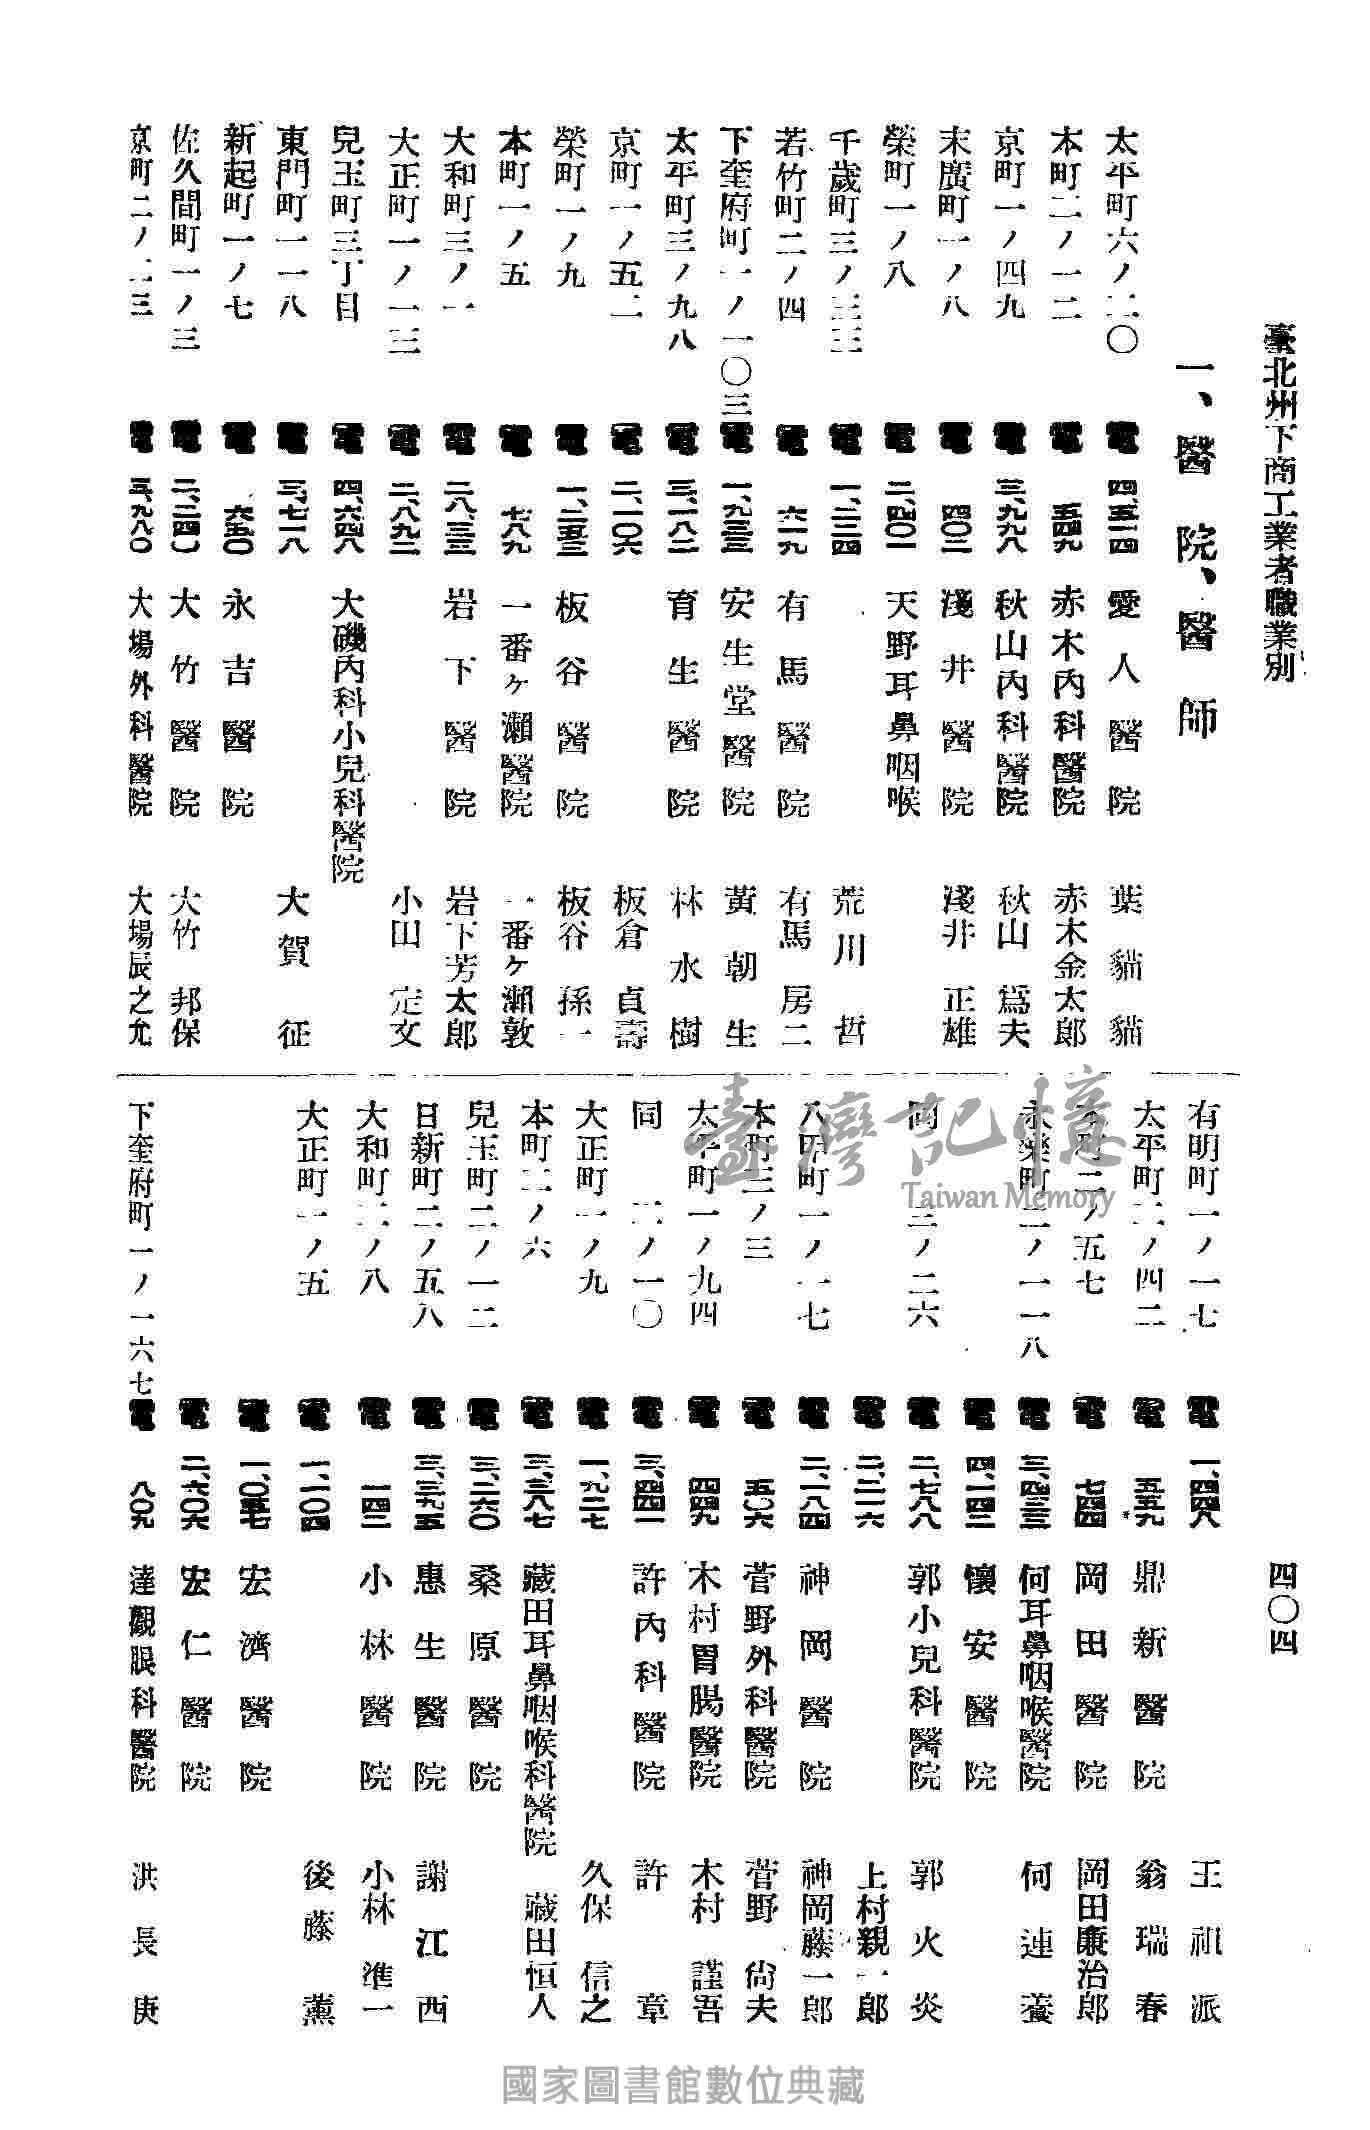 臺北州下商工業者職業別
四〇四
一、醫院、醫師
太平町六ノ二〇 電 四、五一四 愛人醫院 葉貓貓
本町二ノ一二 電 五四九 赤木內科醫院 赤木金太郎
京町一ノ四九 電 三、九九八 秋山內科醫院 秋山爲夫
末廣町一ノ八 電 四〇二 淺井醫院 淺井正雄
榮町一ノ八 電 二、四〇一 天野耳鼻咽喉
千歲町三ノ 電 一、二二四 荒川哲
若竹町二ノ四 電 六一九 有馬醫院 有馬房二
下奎府町一ノ一〇三 電 一、九三三 安生堂醫院 黃朝生
太平町三ノ九八 電 三、一八二 育生醫院 林水樹
京町一ノ五二 電 二、一〇六 板倉貞壽
榮町一ノ九 電 一、二五三 板谷醫院 板谷孫一
本町一ノ五 電 七八九 一番ヶ瀨醫院 一番ヶ瀨敦
大和町三ノ一 電 二八、三三 岩下醫院 岩下芳太郎
大正町一ノ一三 電 二、八九二 小田定文
兒玉町三丁目 電 四、六四八 大磯內科小兒科醫院
東門町一一八 電 三、七一八 大賀征
新起町一ノ七 電 六五〇 永吉醫院
佐久間町一ノ三 電 二、二四〇 大竹醫院 大竹邦保
京町二ノ二三 電 三、九八〇 大場外科醫院 大場辰之允
有明町一ノ一七 電 一、四四八 王祖派
太平町二ノ四二 電 五五九 鼎新醫院 翁瑞春
町二ノ五七 電 七四四 岡田醫院 岡田廉治郎
永樂町二ノ一一八 電 三、四三三 何耳鼻咽喉醫院 何連養
電 四、一四二 懷安醫院
同 三ノ二六 電 二、七八八 郭小兒科醫院 郭火炎
電 二、二一六 上村親一郎
八甲町一ノ一七 電 二、一八四 神岡醫院 神岡藤一郎
本町三ノ三 電 五〇六 菅野外科醫院 菅野尙夫
太平町一ノ九四 電 四四九 木村胃腸醫院 木村謹吾
同 二ノ一〇 電 三、四四一 許內科醫院 許章
大正町一ノ九 電 一、九二七 久保信之
本町二ノ六 電 三、三八七 藏田耳鼻咽喉科醫院 藏田恒人
兒玉町二ノ一二 電 三、二六〇 桑原醫院
日新町二ノ五八 電 三、三九五 惠生醫院 謝江西
大和町二ノ八 電 一四二 小林醫院 小林準一
大正町一ノ五 電 一、一〇四 後藤薰
電 一、〇五七 宏濟醫院
電 二、六〇六 宏仁醫院
下奎府町一ノ一六七 電 八〇九 達觀眼科醫院 洪長庚
臺灣記憶
Taiwan Memory
國家圖書館數位典藏